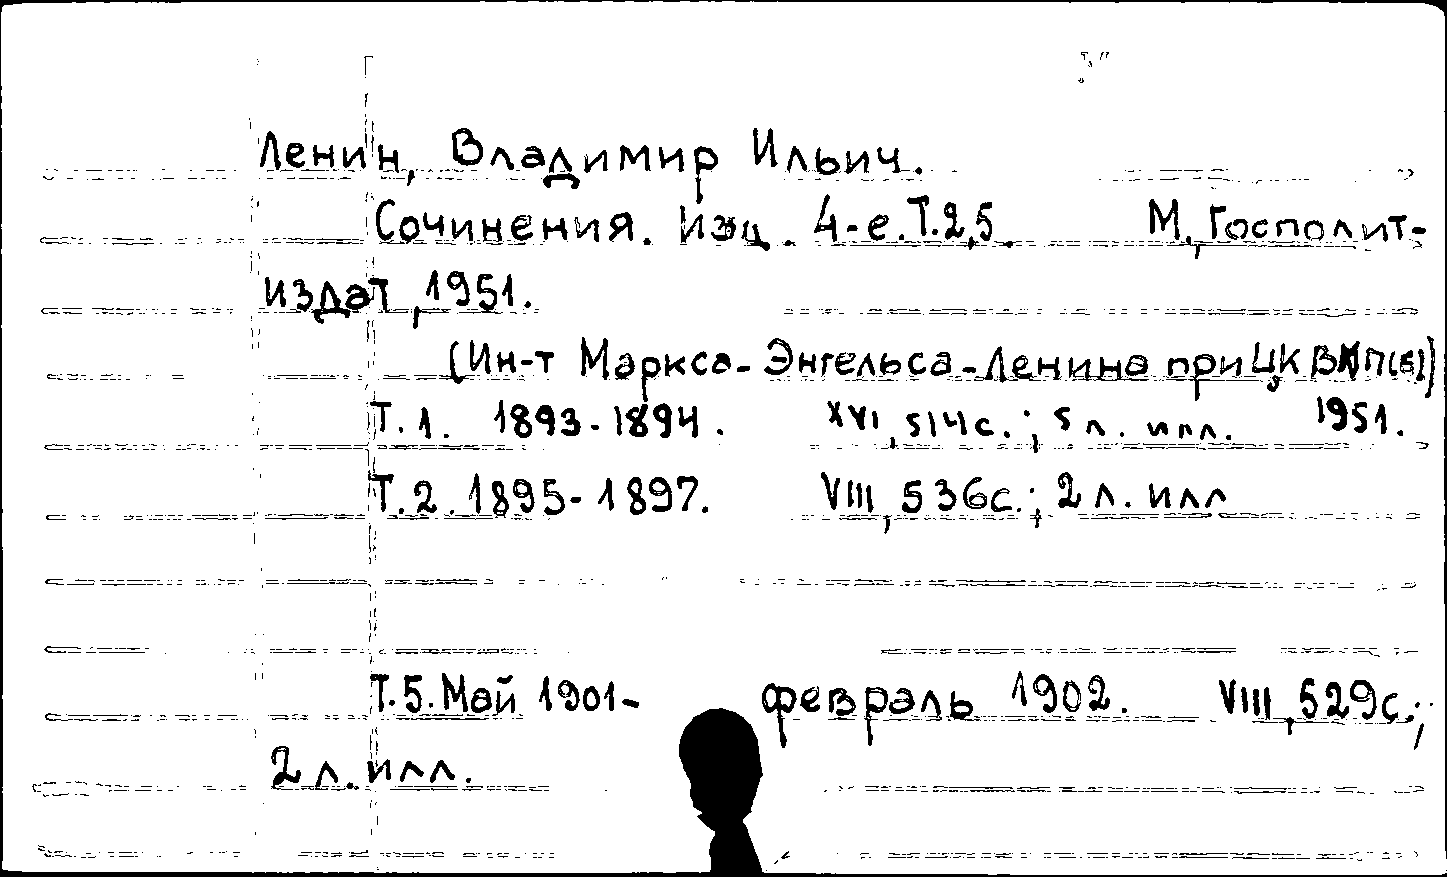 Ленин, Владимир Ильич.
Сочинения. Изд. 4-е. Т.2,5. М., Госполит-
издат, 1951.
(Ин-т Маркса-Энгельса-Ленина при ЦК ВКП(б))
Т.1. 1893-1894. XVI, 514с.; 5 л. илл. 1951.
Т.2. 1895-1897. VIII, 536с.; 2 л. илл
Т.5. Май 1901- февраль 1902. VIII, 529с.;
2 л. илл.